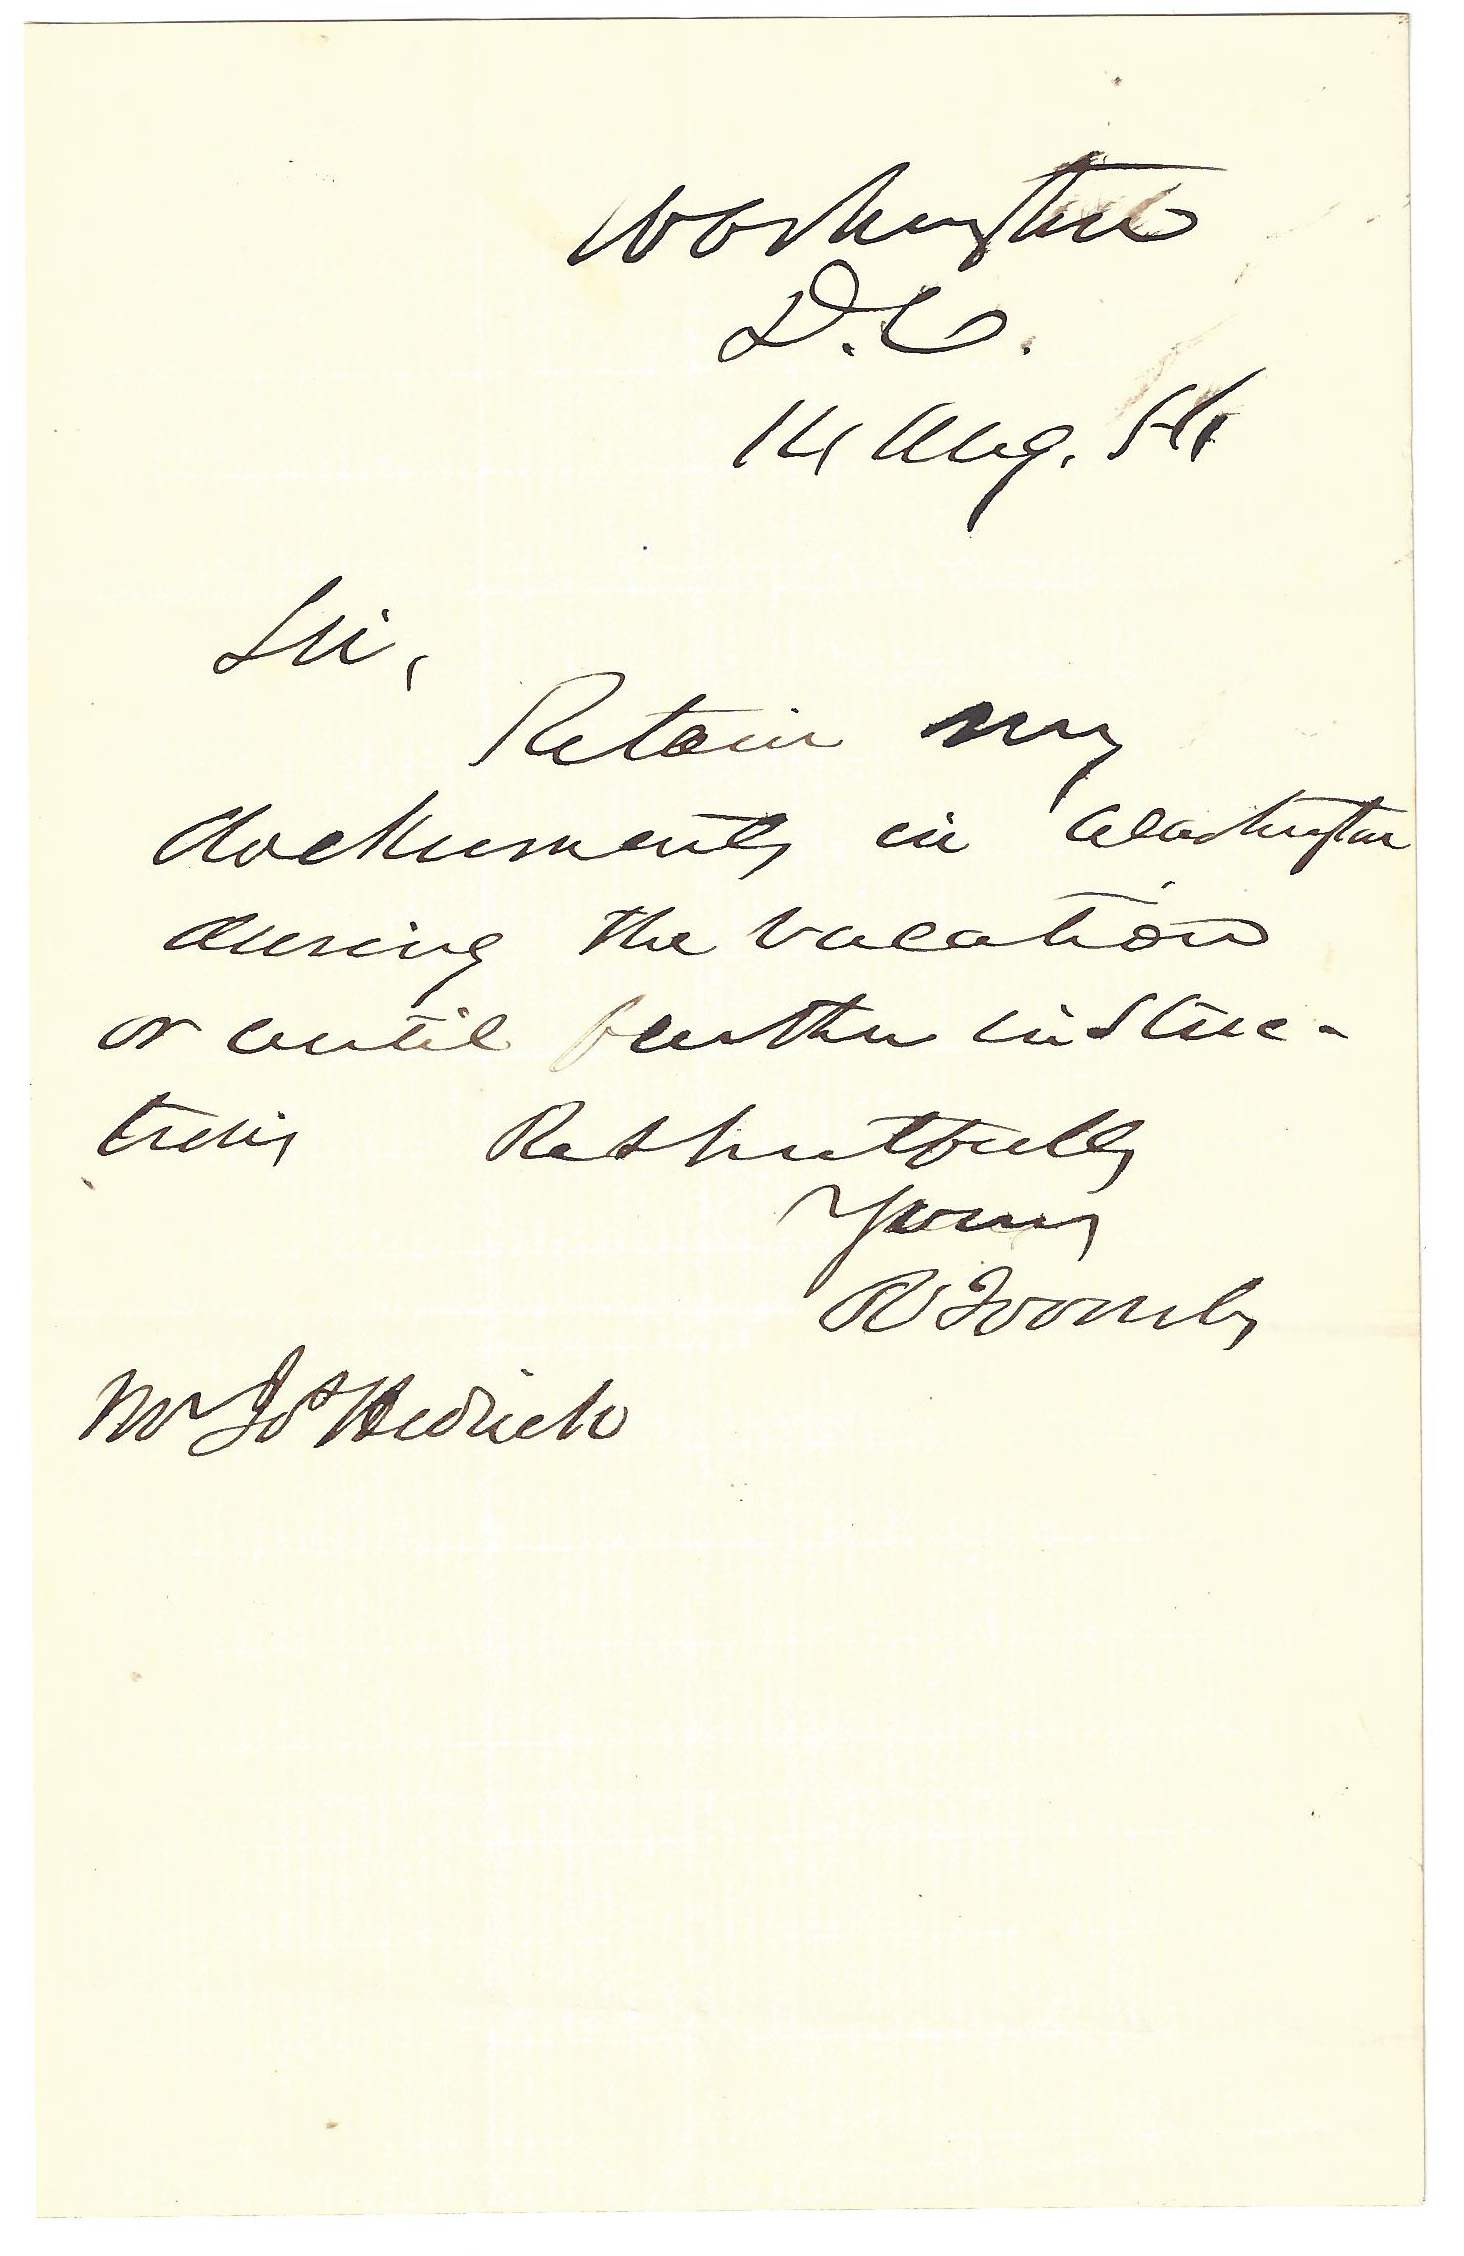 Washington
D.C.
14 Aug. 54
Sir,
Retain my
dockuments in Washington
during the vacation
or until further instruc-
tions Respectfully
Yours
R Toombs
Mr Jos Hedrick